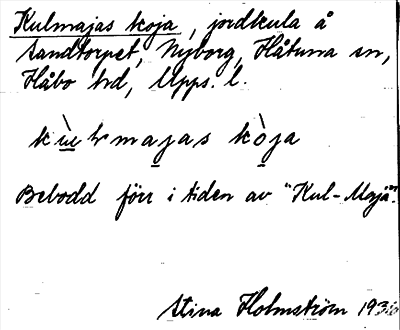 Kulmajas koja, jordkula å
Sandtorpet, Nyborg, Håtuna sn,
Håbo hd, Upps. l.
majas kòja
Bebodd förr i tiden av "Kul-Maja".
Stina Holmström 1936